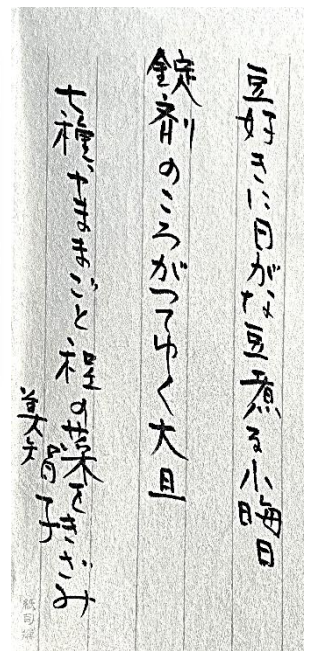 豆好きに日がな豆煮る小晦日
錠剤のころがつてゆく大旦
七種やままごと程の菜をきざみ
美絹子